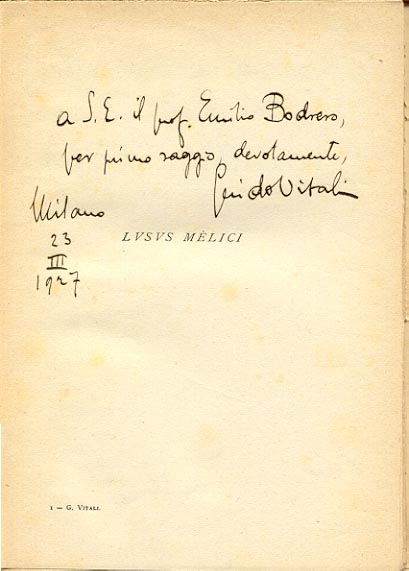 a S. E. il prof. Emilio Bodrero,
per primo saggio, devotamente,
Guido Vitali
Milano
23
III
1927
LVSVS MÈLICI
1 — G. VITALI.